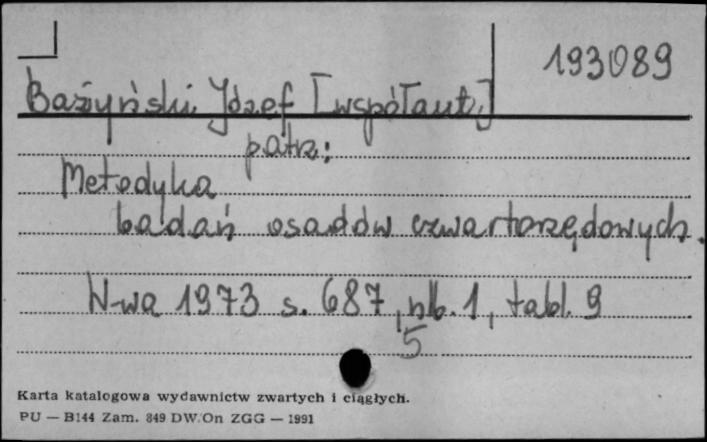 193089
Bażyński Józef [współaut.]
patrz:
Metodyka
badań osadów czwartorzędowych.
W-wa 1973 s. 687, nlb. 1, tabl. 9
5
Karta katalogowa wydawnictw zwartych i ciągłych.
PU — B144 Zam. 849 DW. On ZGG — 1991